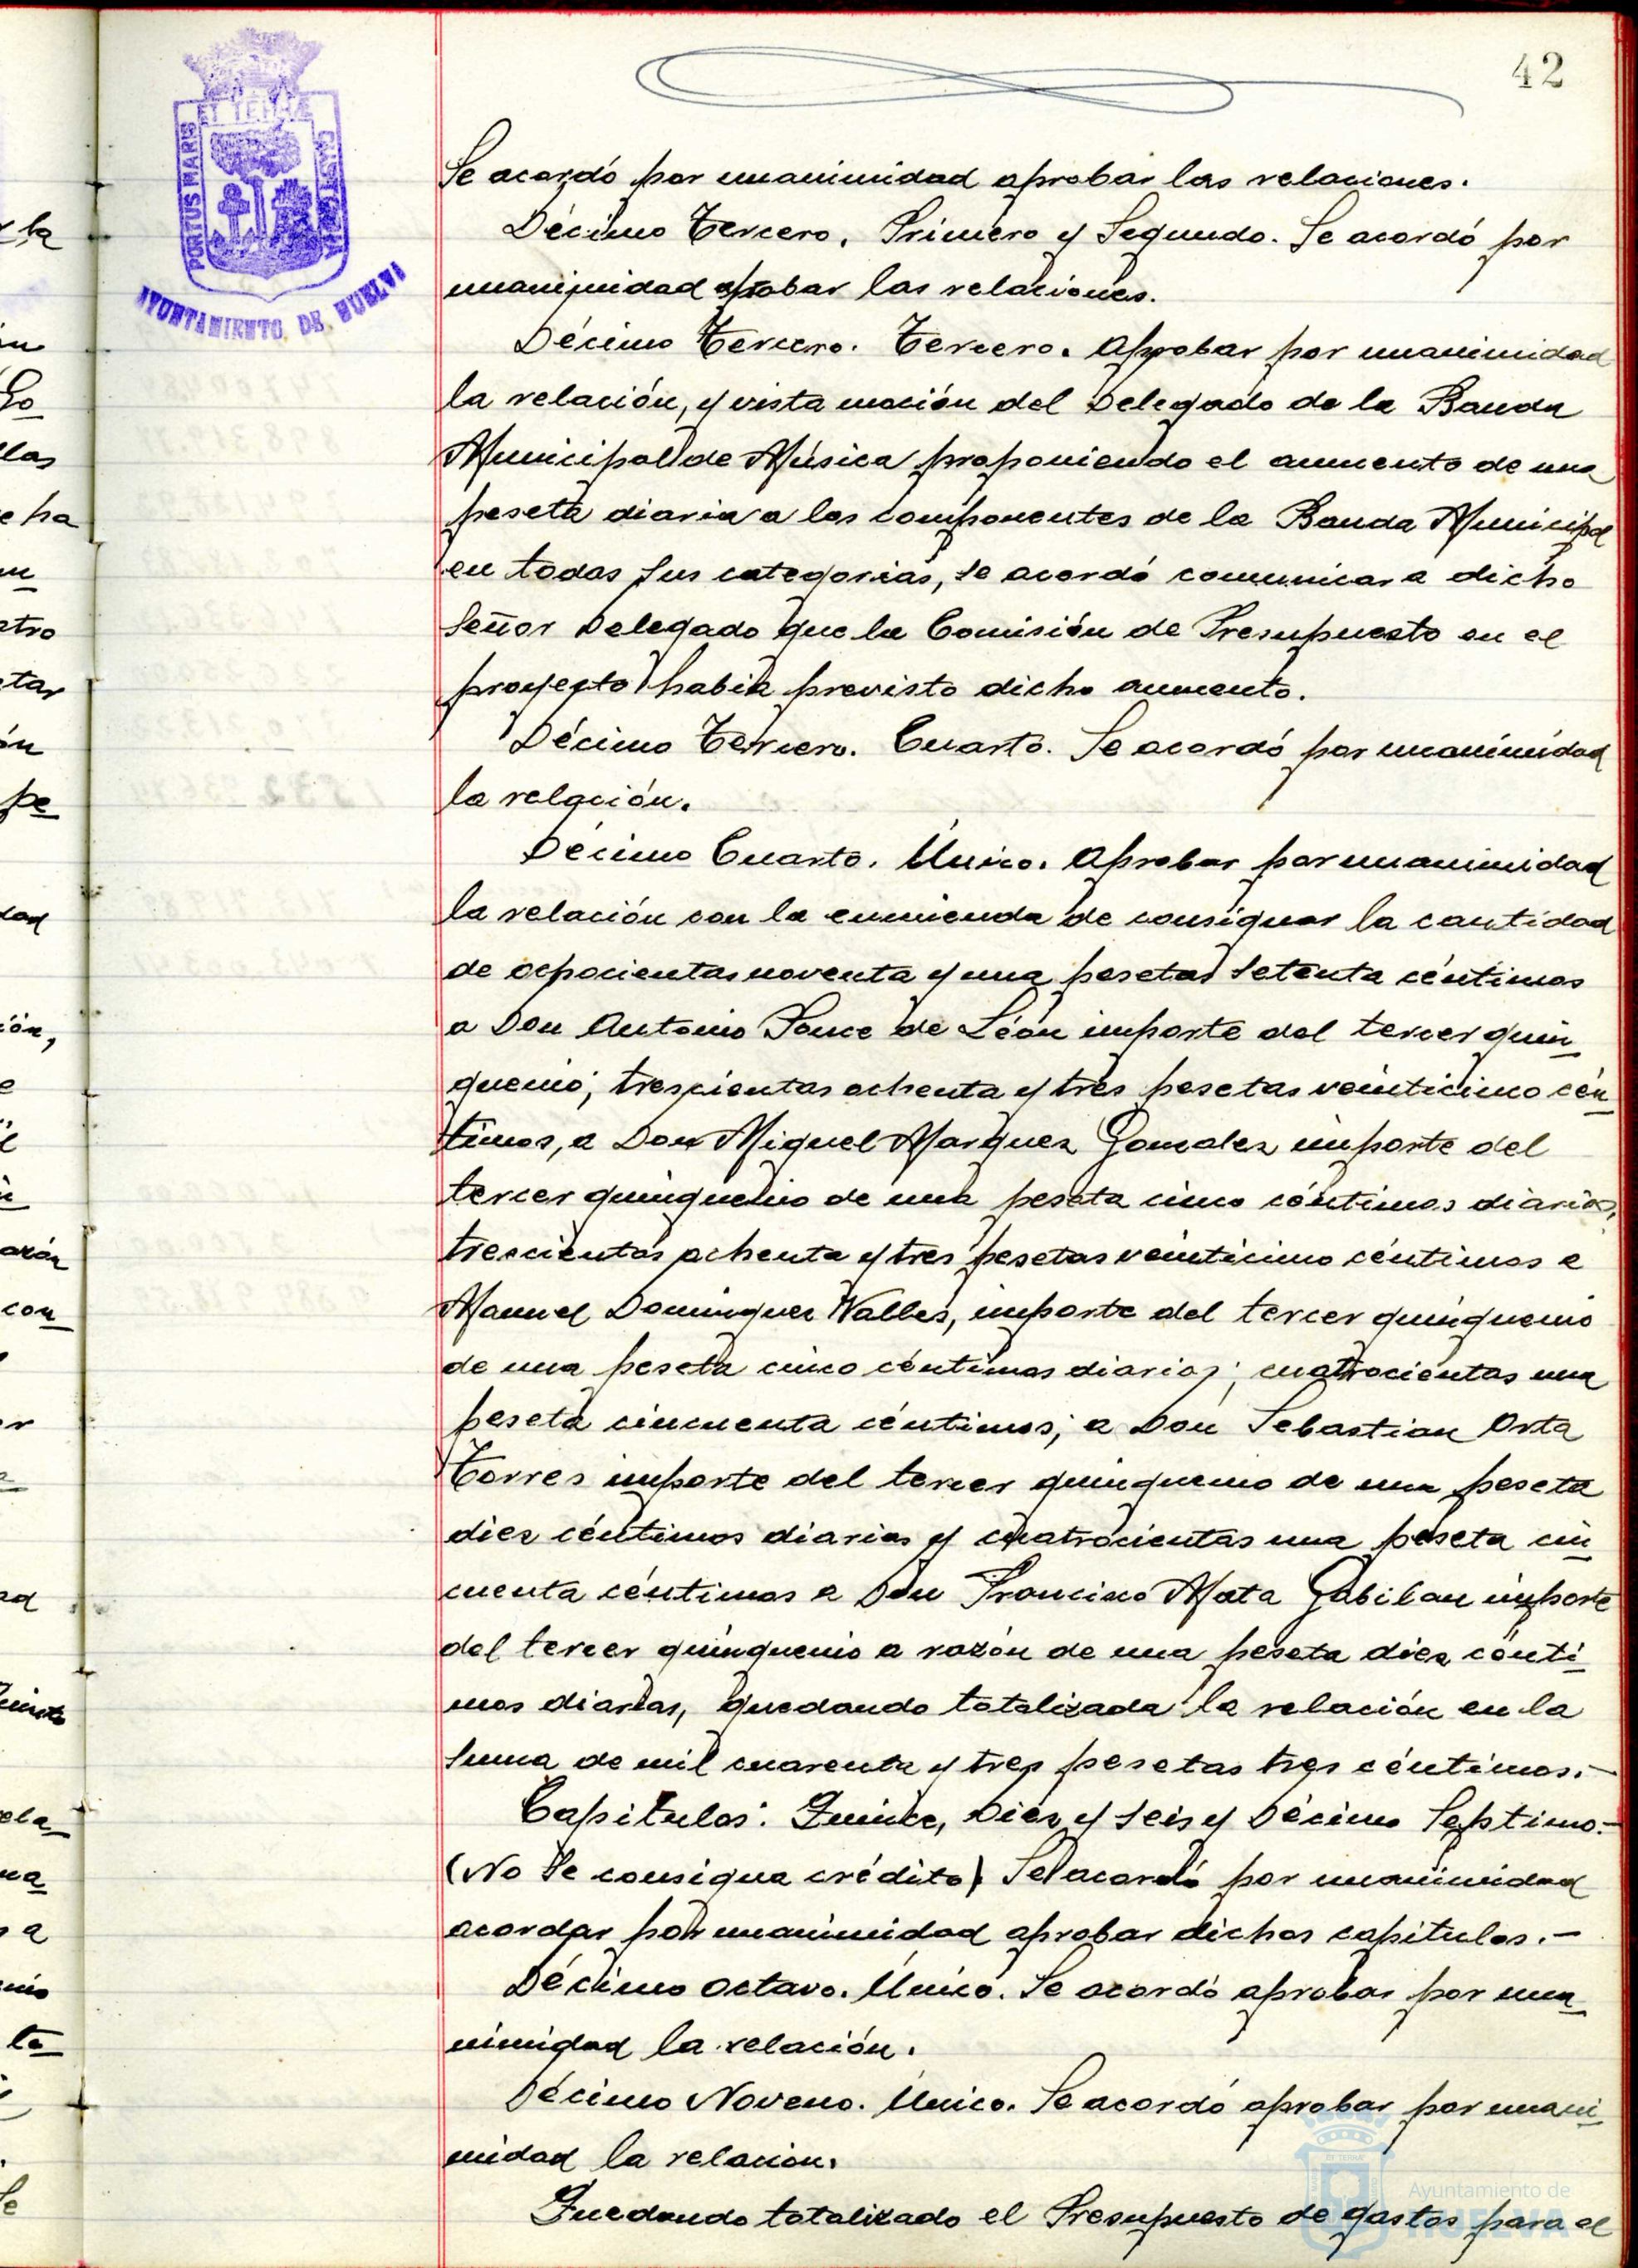 42
ET TERRAE
PORTUS MARIS
CUSTODIA
AYUNTAMIENTO DE HUELVA
Se acordó por unanimidad aprobar las relaciones.
Décimo Tercero. Primero y Segundo. Se acordó por
unanimidad aprobar las relaciones.
Décimo Tercero. Tercero. Aprobar por unanimidad
la relación, y vista moción del Delegado de la Banda
Municipal de Música proponiendo el aumento de una
peseta diaria a los componentes de la Banda Municipal
en todas sus categorias, se acordó comunicar a dicho
Señor Delegado que la Comisión de Presupuesto en el
proyecto habia previsto dicho aumento.
Décimo Tercero. Cuarto. Se acordó por unanimidad
la relación.
Décimo Cuarto. Único. Aprobar por unanimidad
la relación con la enmienda de consignar la cantidad
de ochocientas noventa y una pesetas setenta céntimos
a Don Antonio Ponce de León importe del tercer quin
quenio; trescientas ochenta y tres pesetas veinticinco cén
timos, a Don Miguel Marquez Gonzalez importe del
tercer quinquenio de una peseta cinco céntimos diarios,
trescientas ochenta y tres pesetas veinticinco céntimos a
Manuel Dominguez Valles, importe del tercer quinquenio
de una peseta cinco céntimos diarios; cuatrocientas una
peseta cincuenta céntimos; a Don Sebastian Orta
Torres importe del tercer quinquenio de una peseta
diez céntimos diarios y cuatrocientas una peseta cin
cuenta céntimos a Don Francisco Mata Gabilan importe
del tercer quinquenio a razón de una peseta diez cénti
mos diarias, quedando totalizada la relación en la
suma de mil cuarenta y tres pesetas tres céntimos.-
Capitulos: Quince, Diez y Seis y Décimo Septimo.-
(No se consigna crédito) Se acordó por unanimidad
acordar por unanimidad aprobar dichos capitulos.-
Décimo Octavo. Único. Se acordó aprobar por una
nimidad la relación.
Décimo Noveno. Único. Se acordó aprobar por unani
midad la relacion.
Quedando totalizado el Presupuesto de gastos para el
Ayuntamiento de
HUELVA